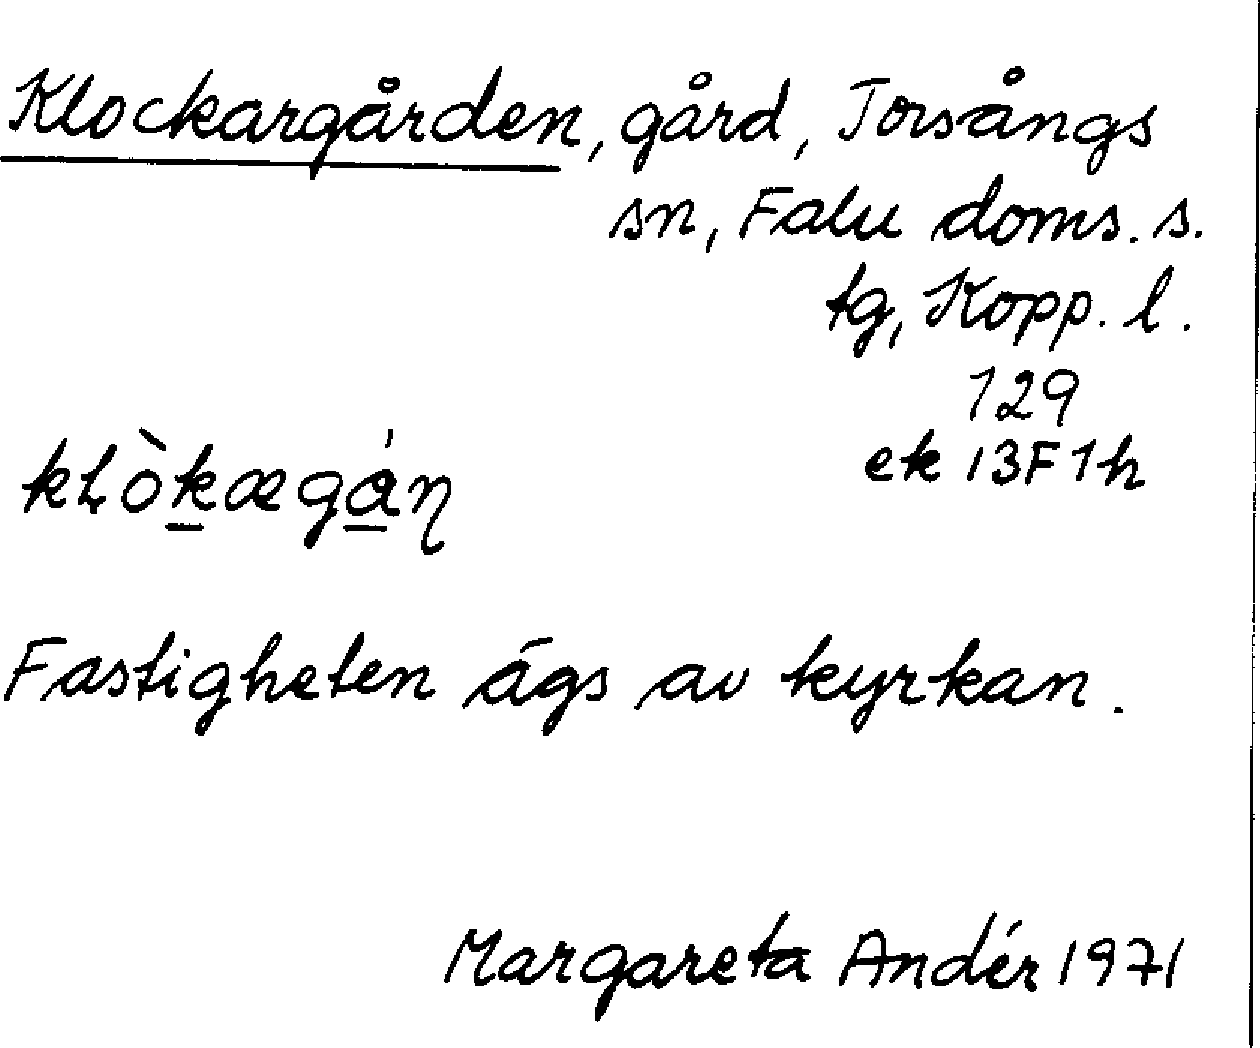 Klockargården, gård, Torsångs
sn, Falu doms. s.
tg, Kopp. l.
129
ek 13F1h
kḷòk̲ægá̲ŋ
Fastigheten ägs av kyrkan.
Margareta Andér 1971